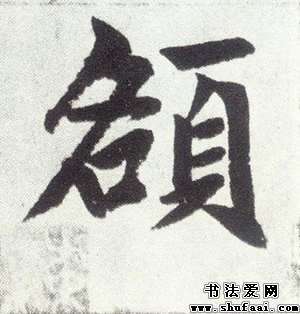 頟
书法爱网
www.shufaai.com